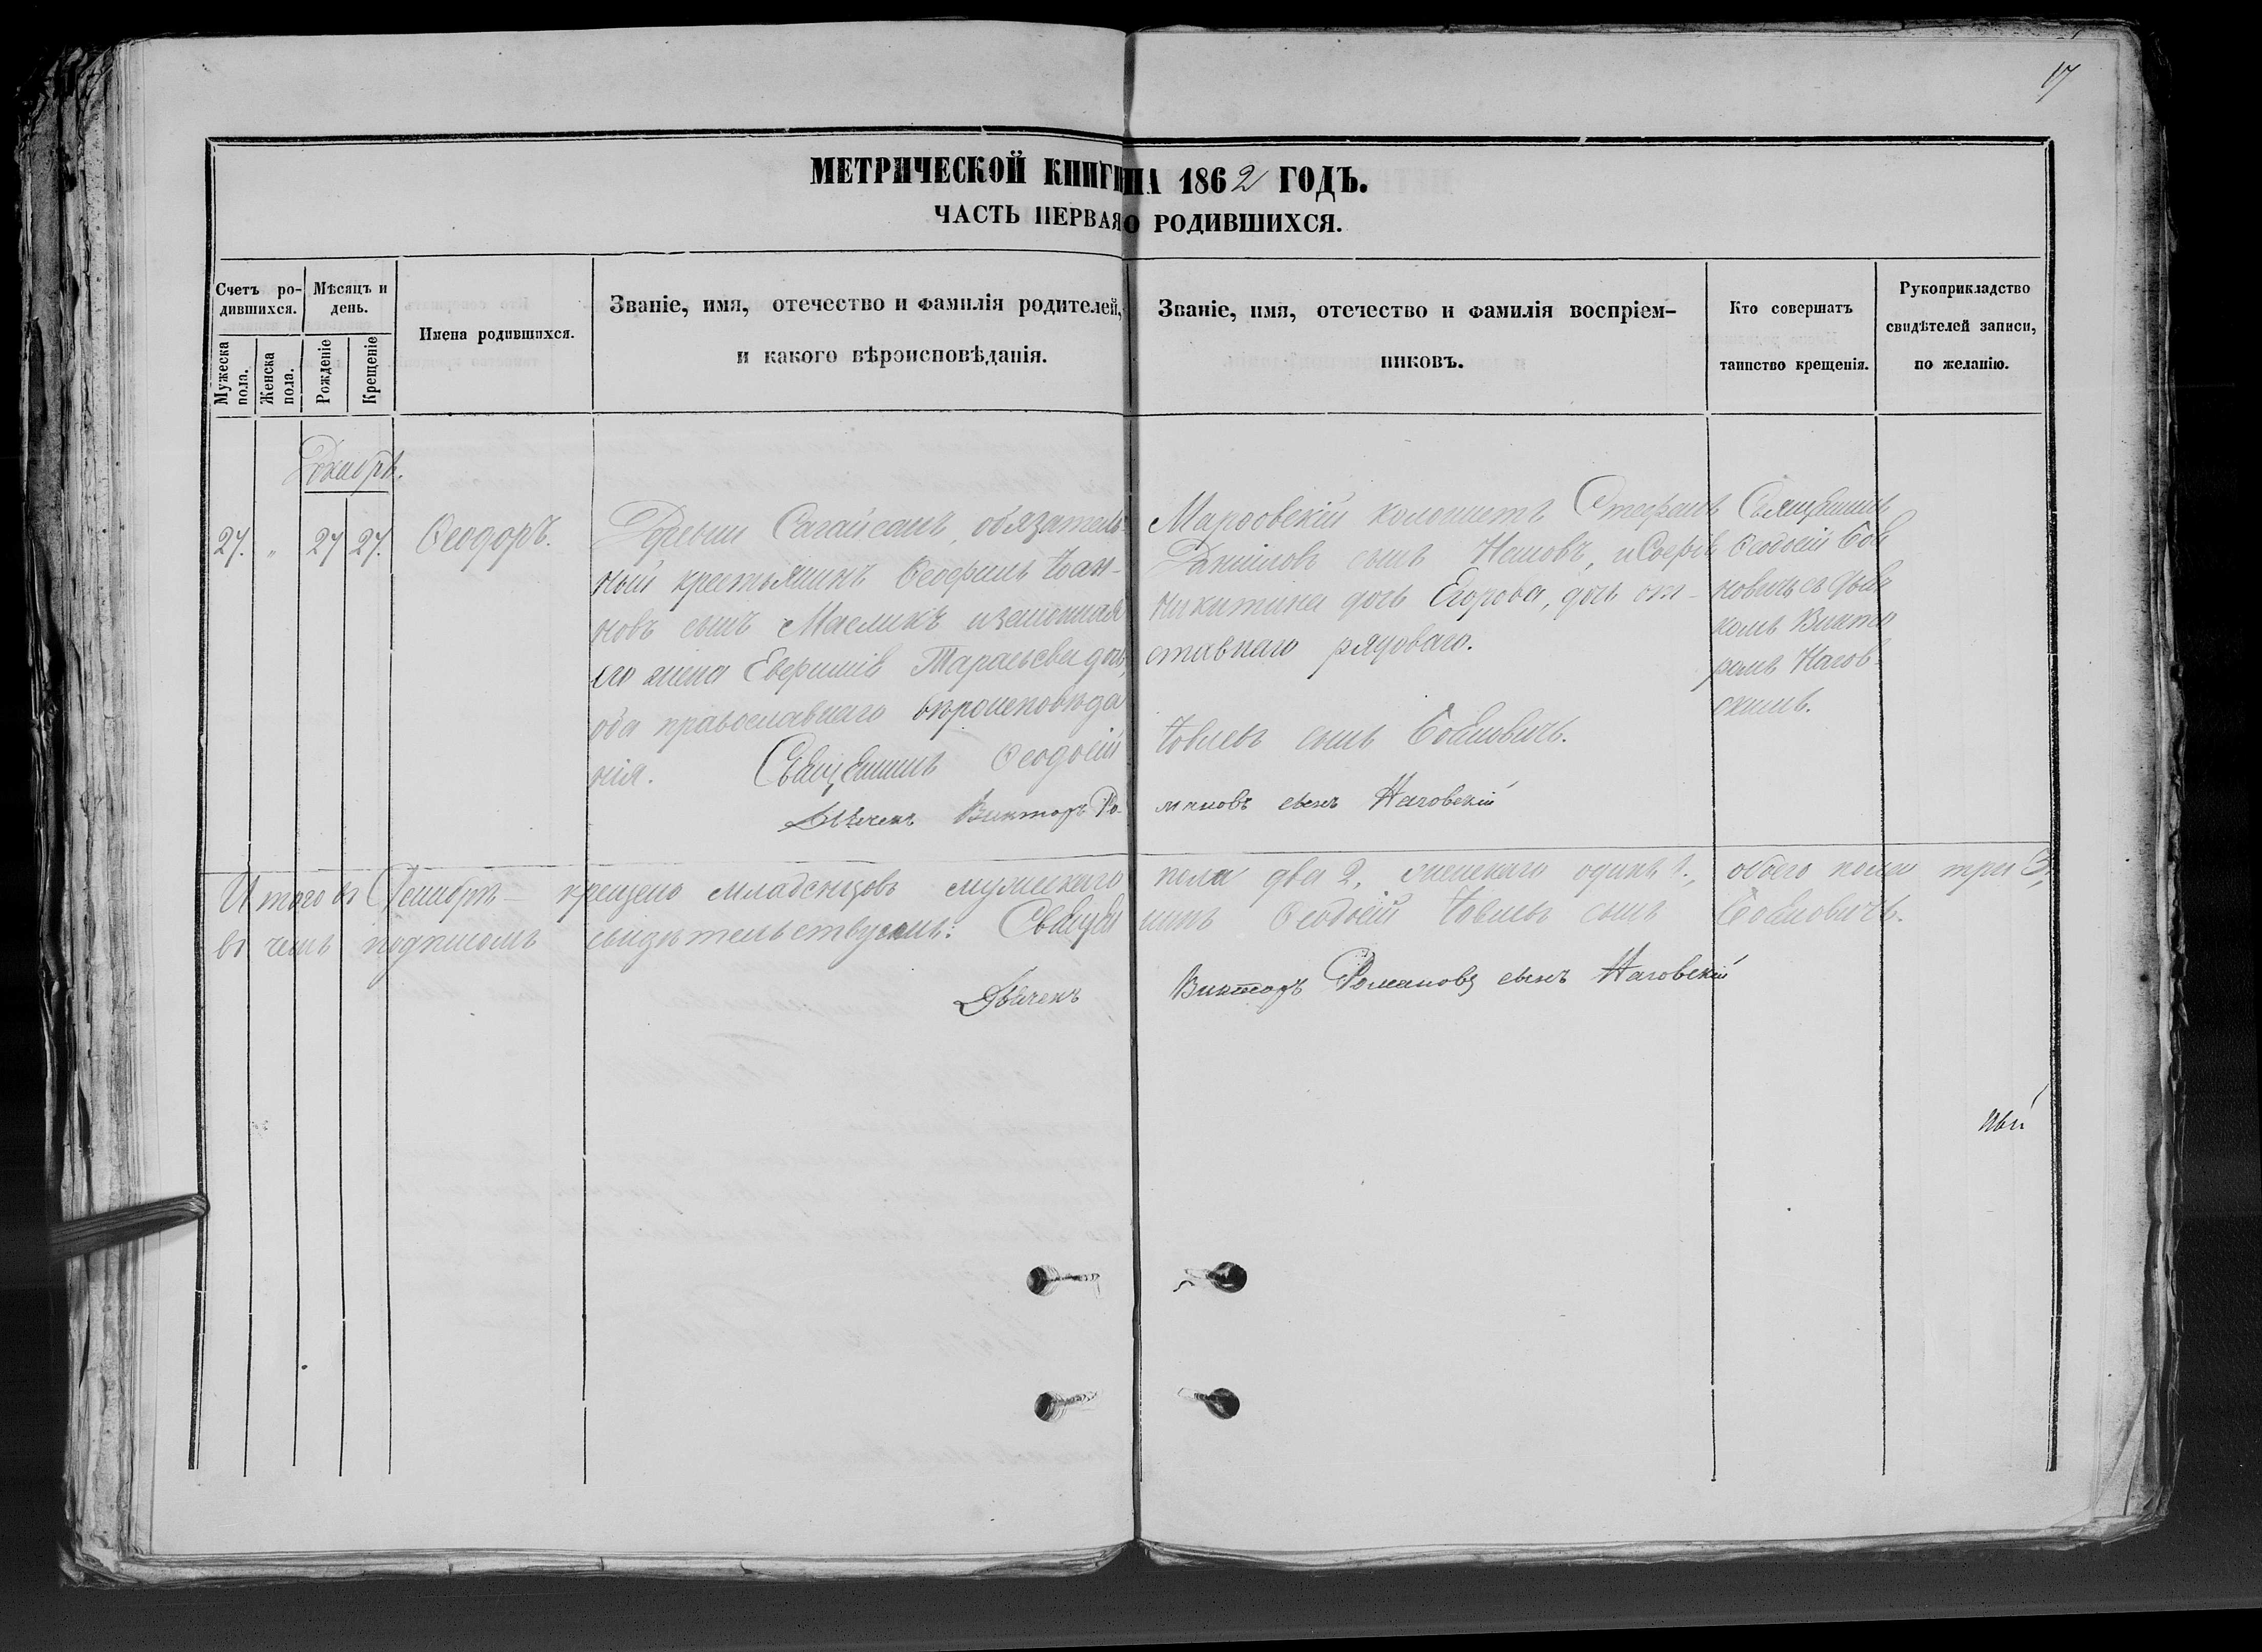 17
МЕТРИЧЕСКОЙ КНИГИ НА 1862 ГОДЪ.
ЧАСТЬ ПЕРВАЯ О РОДИВШИХСЯ.
Счетъ ро-
дившихся.
Мужеска
пола.
Женска
пола.
Мѣсяцъ и
день.
Рожденіе
Крещеніе
Имена родившихся.
Званіе, имя, отечество и фамилія родителей,
и какого вѣроисповѣданія.
Званіе, имя, отечество и фамилія воспріем-
никовъ.
Кто совершатъ
таинство крещенія.
Рукоприкладство
свидѣтелей записи,
по желанію.
Декабрь.
27. „ 27 27. Ѳеодоръ.
Деревни обязатель-
ный крестьянинъ Ѳеофилъ Іоан-
новъ сынъ Масликъ изаконная
его жена Евфимія Тарасьева дочь,
оба православнаго вѣроисповѣда
нія.
Маровскій колонистъ Стефанъ
Даниловъ сынъ
Никитина дочь Егорова, дочь от-
ставнаго рядоваго.
Священникъ
Ѳеодосій Бое
новичь съ Дьяч
комъ Викто
ромъ Нагов-
скимъ.
Священникъ Ѳеодосій Іовлевъ сынъ Боеновичъ.
Дьячекъ Викторъ Ро-
мановъ сынъ Наговскій
Итого въ Декабрѣ - крещено младенцовъ мужескаго пола два 2, женскаго одинъ 1., обоего пола три 3,
въ чемъ подписомъ свидѣтельствуемъ: Священ
никъ Ѳеодосій Іовлевъ сынъ Боеновичъ.
Дьячекъ Викторъ Романовъ сынъ Наговскій
ный